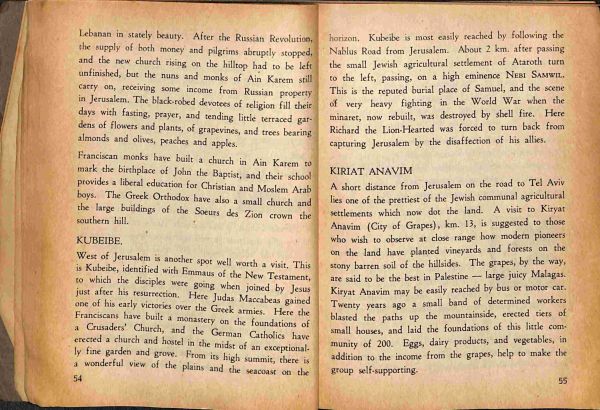 Lebanan in stately beauty. After the Russian Revolution,
the supply of both money and pilgrims abruptly stopped,
and the new church rising on the hilltop had to be left
unfinished, but the nuns and monks of Ain Karem still
carry on, receiving some income from Russian property
in Jerusalem. The black-robed devotees of religion fill their
days with fasting, prayer, and tending little terraced gar-
dens of flowers and plants, of grapevines, and trees bearing
almonds and olives, peaches and apples.
Franciscan monks have built a church in Ain Karem to
mark the birthplace of John the Baptist, and their school
provides a liberal education for Christian and Moslem Arab
boys. The Greek Orthodox have also a small church and
the large buildings of the Soeurs des Zion crown the
southern hill.
KUBEIBE.
West of Jerusalem is another spot well worth a visit. This
is Kubeibe, identified with Emmaus of the New Testament,
to which the disciples were going when joined by Jesus
just after his resurrection. Here Judas Maccabeas gained
one of his early victories over the Greek armies. Here the
Franciscans have built a monastery on the foundations of
a Crusaders' Church, and the German Catholics have
erected a church and hostel in the midst of an exceptional-
ly fine garden and grove. From its high summit, there is
a wonderful view of the plains and the seacoast on the
54
horizon. Kubeibe is most easily reached by following the
Nablus Road from Jerusalem. About 2 km. after passing
the small Jewish agricultural settlement of Ataroth turn
to the left, passing, on a high eminence NEBI SAMWIL.
This is the reputed burial place of Samuel, and the scene
of very heavy fighting in the World War when the
minaret, now rebuilt, was destroyed by shell fire. Here
Richard the Lion-Hearted was forced to turn back from
capturing Jerusalem by the disaffection of his allies.
KIRIAT ANAVIM
A short distance from Jerusalem on the road to Tel Aviv
lies one of the prettiest of the Jewish communal agricultural
settlements which now dot the land. A visit to Kiryat
Anavim (City of Grapes), km. 13, is suggested to those
who wish to observe at close range how modern pioneers
on the land have planted vineyards and forests on the
stony barren soil of the hillsides. The grapes, by the way,
are said to be the best in Palestine — large juicy Malagas.
Kiryat Anavim may be easily reached by bus or motor car.
Twenty years ago a small band of determined workers
blasted the paths up the mountainside, erected tiers of
small houses, and laid the foundations of this little com-
munity of 200. Eggs, dairy products, and vegetables, in
addition to the income from the grapes, help to make the
group self-supporting.
55